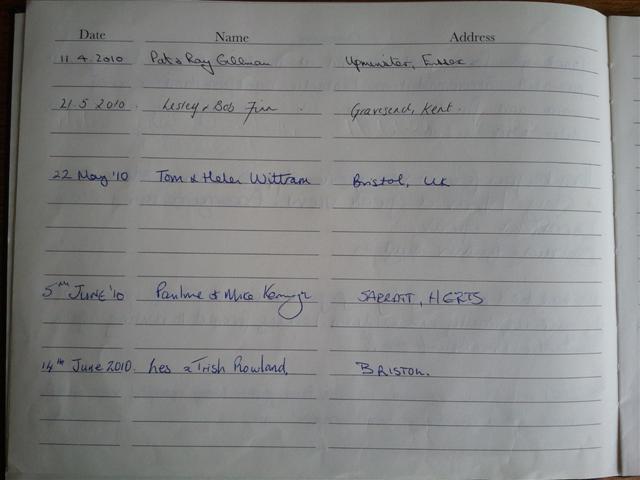 Date Name Address
11.4.2010 Pat & Ray Upminster, Essex.
21.5.2010. Lesley & Bob Finn Gravesend, Kent.
22 May '10 Tom & Helen Wittram Bristol, UK
5TH JUNE '10 Pauline & Mike SARRATT, HERTS
14th June 2010. Les & Trish Rowland. BRISTOL.